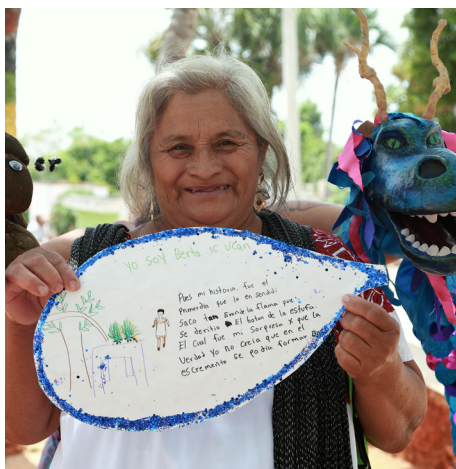 Yo soy Berta ic ucan
Pues mi historia fue el
primerdia que lo en sendi
saco tan Grande la flama que
se deritio El boton de la estufa.
El cual fue mi sorpresa x que la
verdad Yo no creia que en el
escremento se podia formar